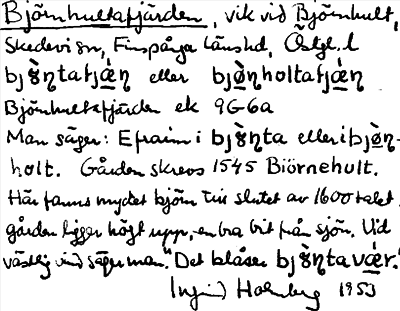 Björnhultafjärden, vik vid Björnhult,
Skedevi sn, Finspånga länshd, Östgl. l
bjò̤ṇtafjæ̀ṇ eller bjø̤ṇholtafjæ̀ṇ
Björnhultafjärden ek 9G6a
Man säger: Efraim i bjò̤ṇta eller i bjø̤ṇ-
holt. Gården skrevs 1545 Biörnehult.
Här fanns mycket björn till slutet av 1600talet.
gården ligger högt upp, en bra bit från sjön. Vid
västlig vind säger man "Det blåser bjò̤ṇtavæ̀r."
Ingrid Holmberg 1953